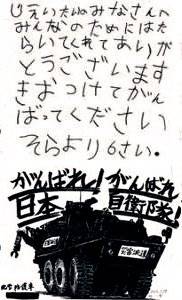 じえいたいのみなさんへ
みんなのためにはた
らいてくれてありが
とうございます
きをつけてがん
ばってください
そらより6さい。
がんばれ！
日本
がんばれ
自衛隊！
災害派遣